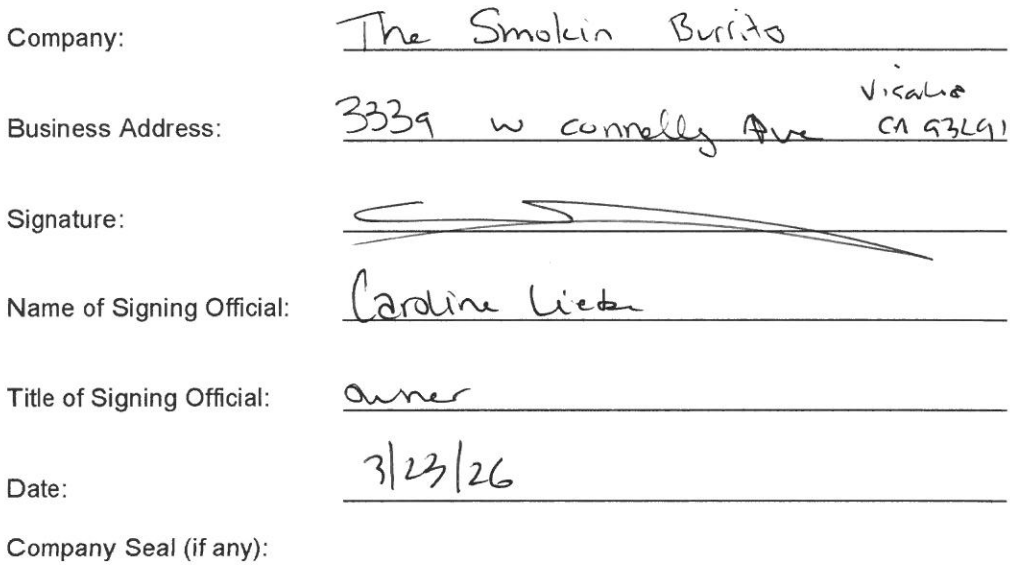 Company: The Smokin Burrito
Visalia
Business Address: 3339 W Connelly Ave CA 93291
Signature:
Name of Signing Official: Caroline
Title of Signing Official: Owner
Date: 3/23/26
Company Seal (if any):